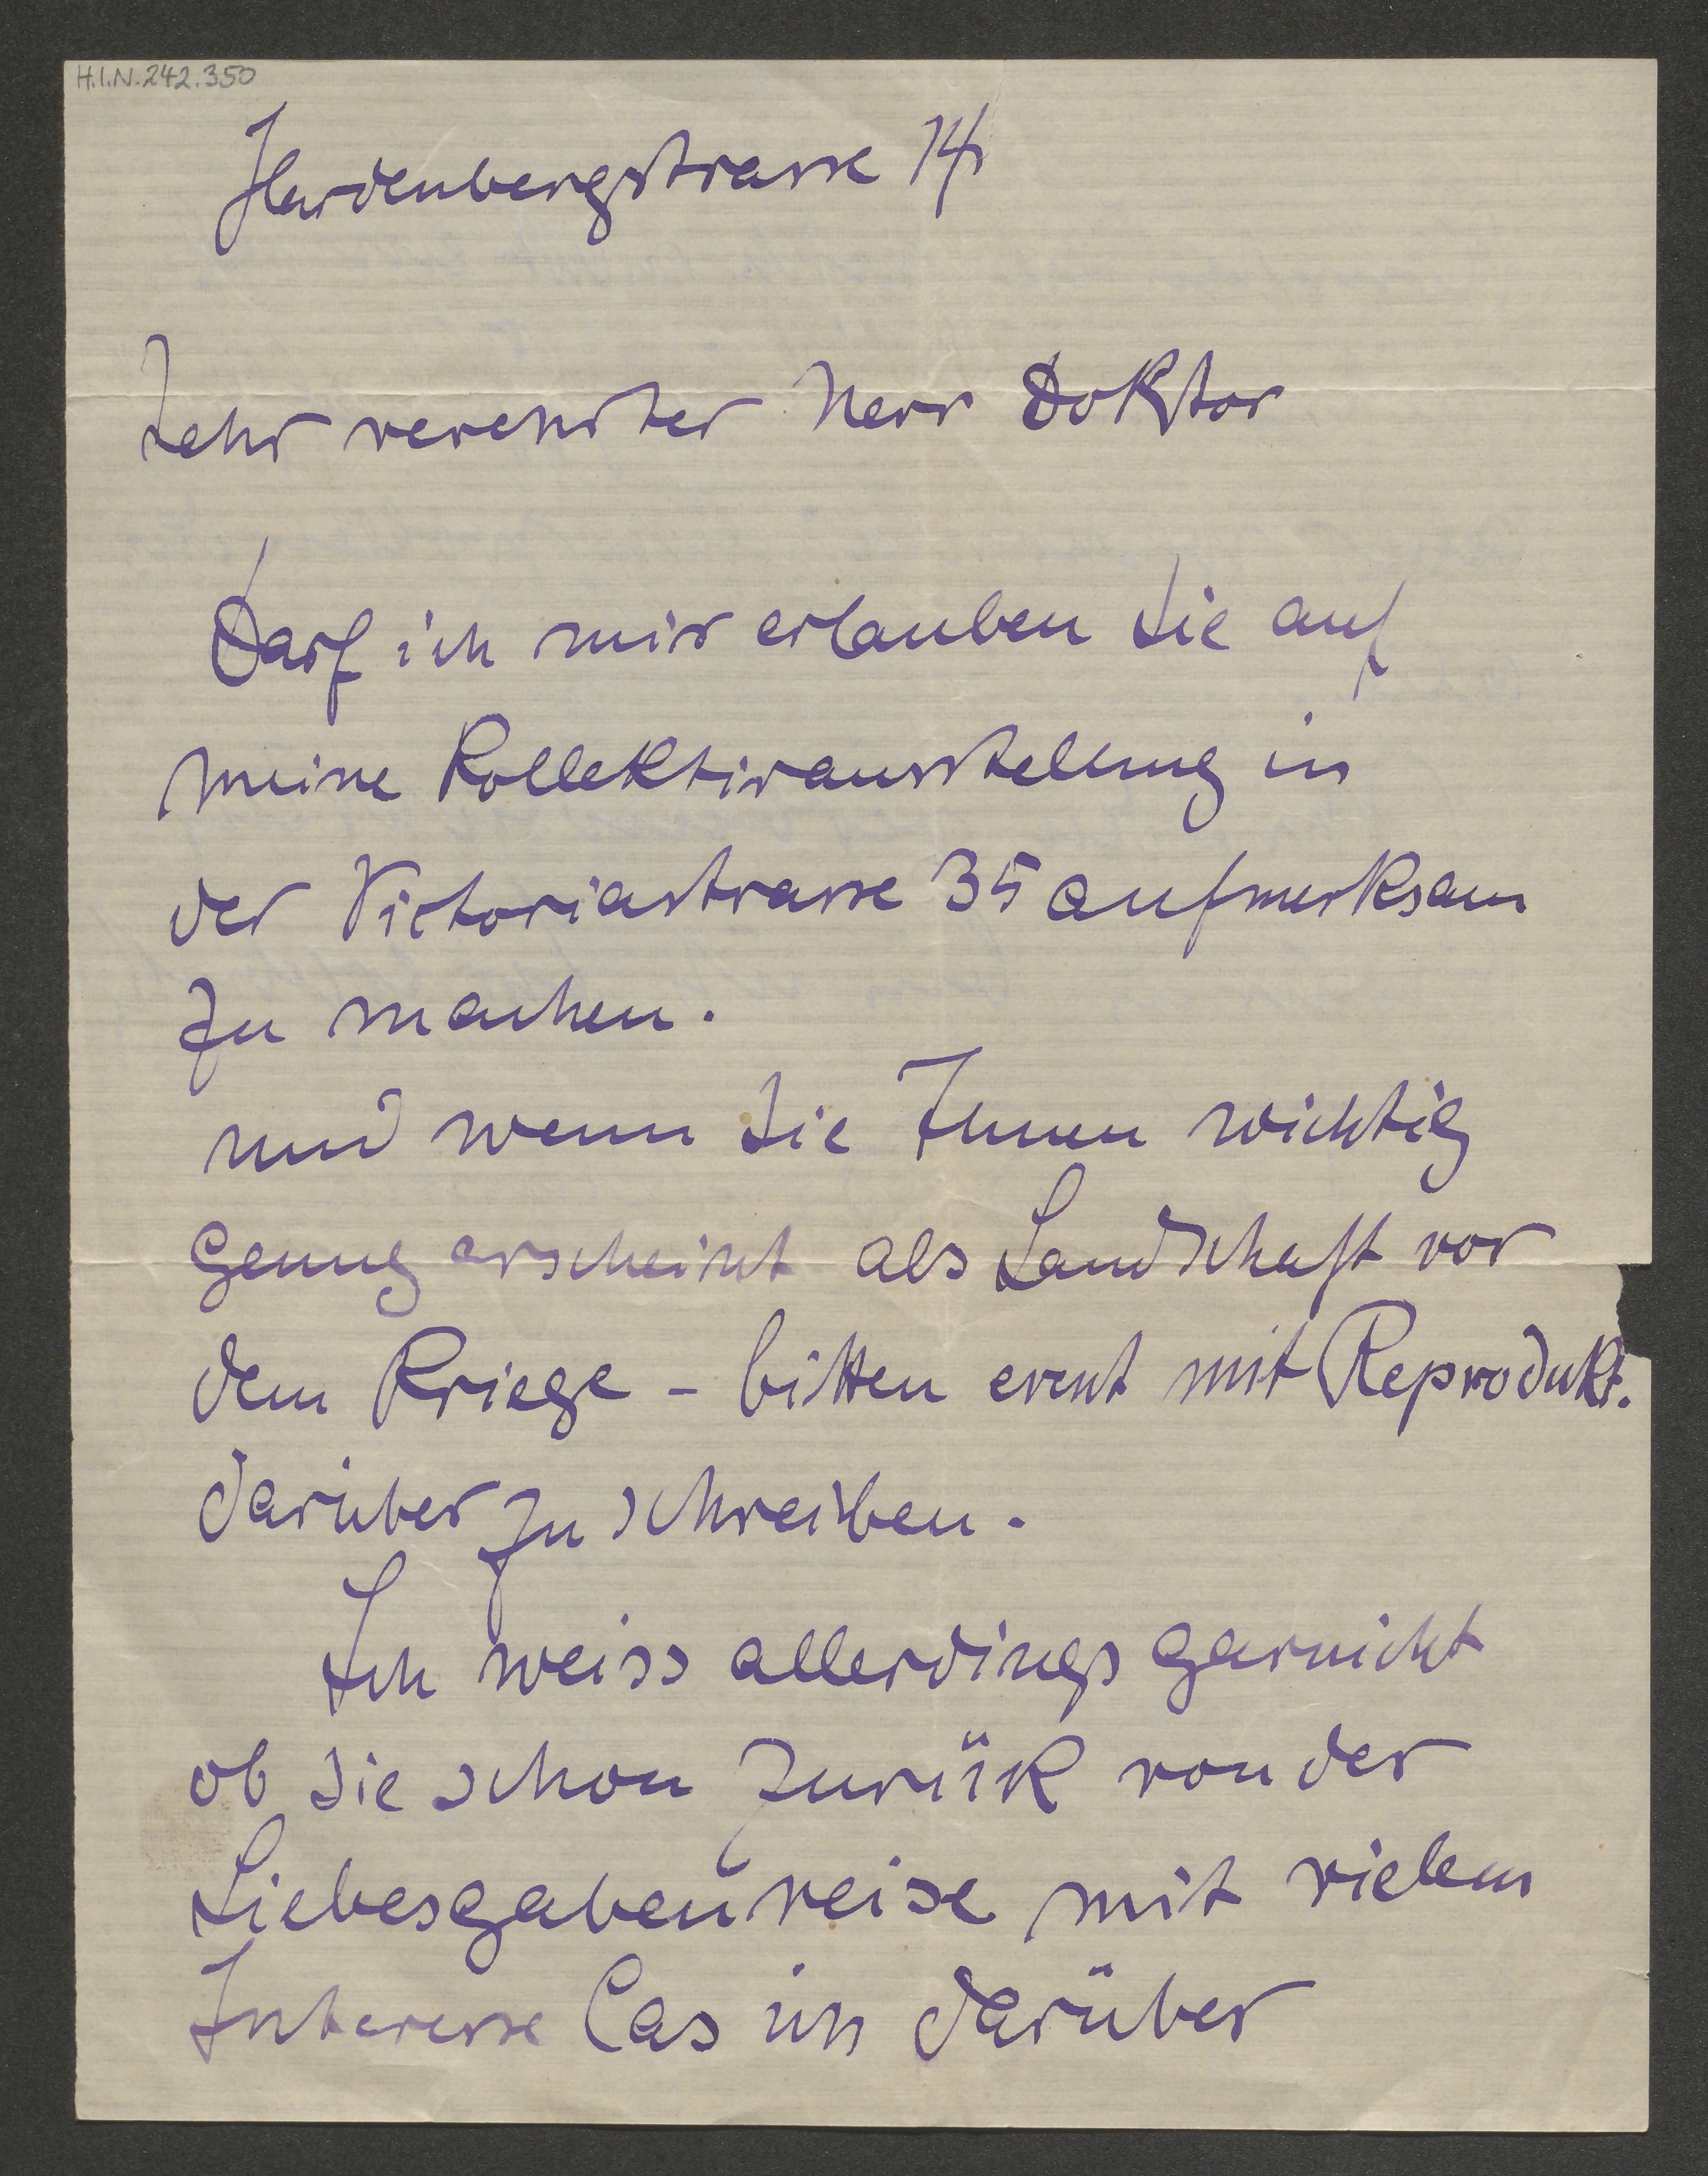 H.I.N. 242.350
Hardenbergstrasse 14
Sehr verehrter Herr Doktor
Darf ich mir erlauben Sie auf
meine Kollektivausstellung in
der Victoriastrasse 35 aufmerksam
zu machen.
und wenn Sie Ihnen wichtig
genug erscheint als Landschaft vor
dem Kriege - bitten event mit Reprodukt.
darüber zu schreiben.
Ich weiss allerdings garnicht
ob Sie schon zurük von der
Liebesgabenreise mit vielem
Interesse las ich darüber